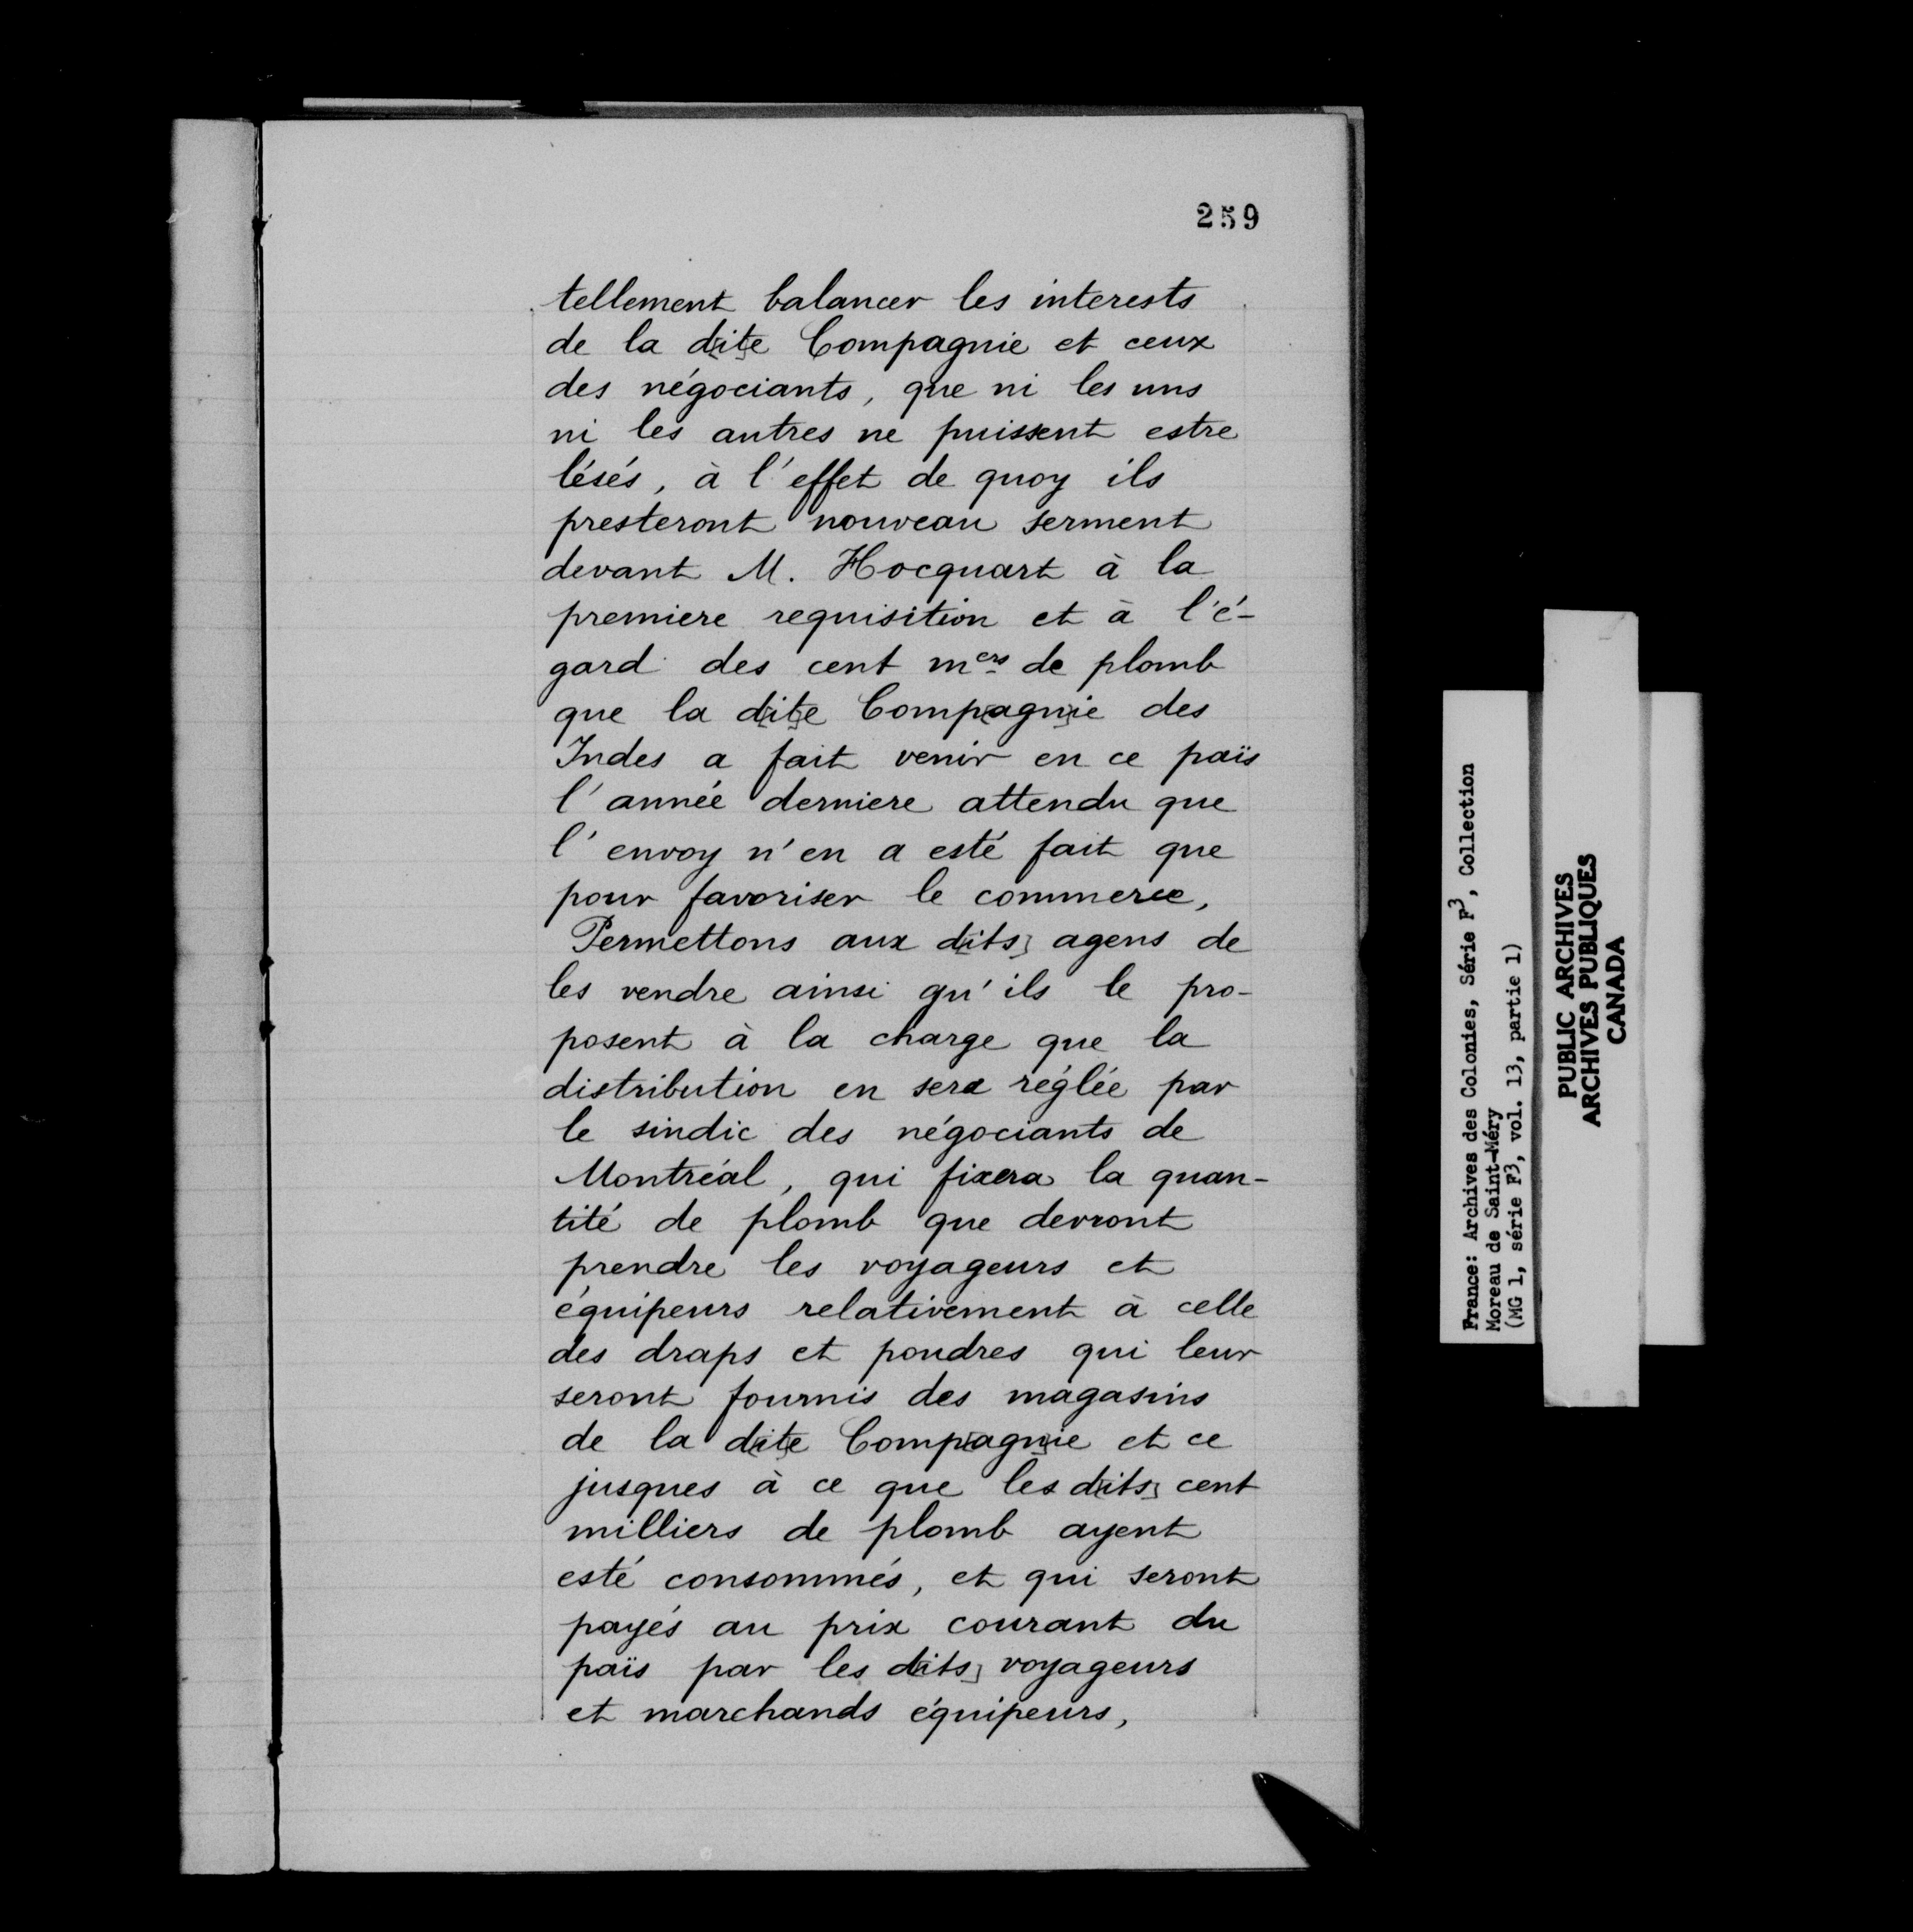 259
tellement balancer les interests
de la d[it]e Compagnie et ceux
des négociants, que ni les uns
ni les autres ne puissent estre
lésés, à l'effet de quoy ils
presteront nouveau serment
devant M. Hocquart à la
premiere requisition et à l'é-
gard des cent mers de plomb
que la d[it]e Comp[agn]ie des
Indes a fait venir en ce païs
l'année derniere attendu que
l'envoy n'en a esté fait que
pour favoriser le commerce,
Permettons aux d[its] agens de
les vendre ainsi qu'ils le pro-
posent à la charge que la
distribution en sera réglée par
le sindic des négociants de
Montréal, qui fixera la quan-
tité de plomb que devront
prendre les voyageurs et
équipeurs relativement à celle
des draps et poudres qui leur
seront fournis des magasins
de la d[it]e Comp[agn]ie et ce
jusques à ce que les d[its] cent
milliers de plomb ayent
esté consommés, et qui seront
payés au prix courant du
païs par les d[its] voyageurs
et marchands équipeurs,
France: Archives des Colonies, Série F3, Collection
Moreau de Saint-Méry
(MG 1, série F3, vol. 13, partie 1)
PUBLIC ARCHIVES
ARCHIVES PUBLIQUES
CANADA